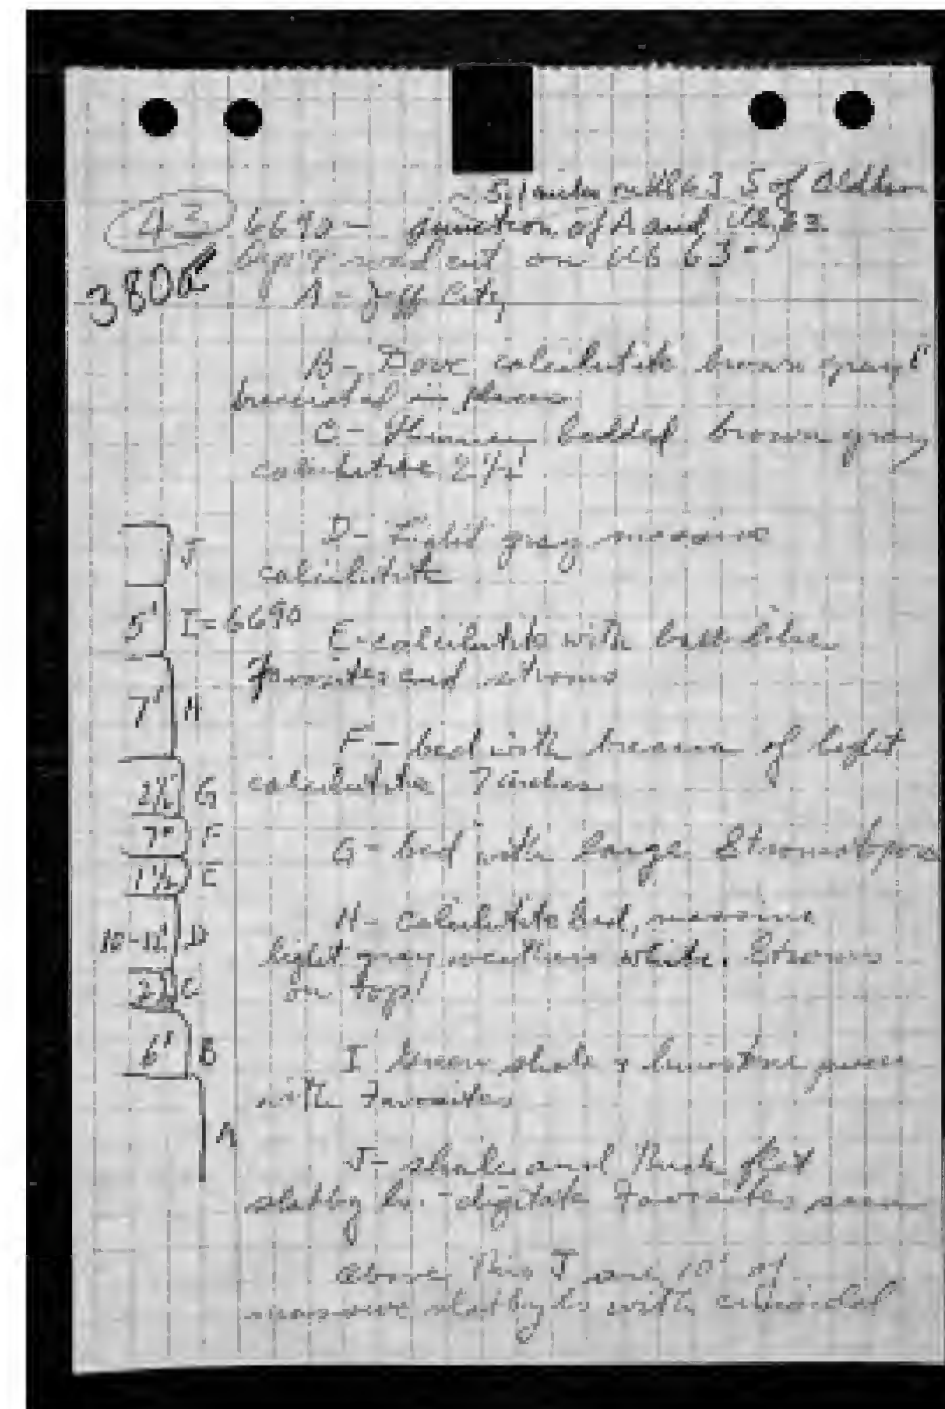 5.1 miles on US 63 S of
43 6690 - junction of A and US 63
3806 road cut on US 63 -
A - Jeff City
B - Dove calcilutite brown gray
brecciated in places
C - Thinner bedded brown gray
calcilutite 2 1/2'
D - Light gray massive
calcilutite
E - calcilutite with
Favosites and stroms
F - bed with breccia of light
calcilutite 7 inches
G - bed with large Stromatopora
H - calcilutite bed, massive
light gray weathers white. Stroms
on top!
I Green shale & limestone
with Favosites
J - shale and thick
slabby ls. - digitate Favosites seen
above this J are 10' of
massive slabby ls with crinoidal
J
5' I = 6690
7' H
2 1/2' G
7" F
1 1/2 E
10-12' D
2 1/2 C
6' B
A